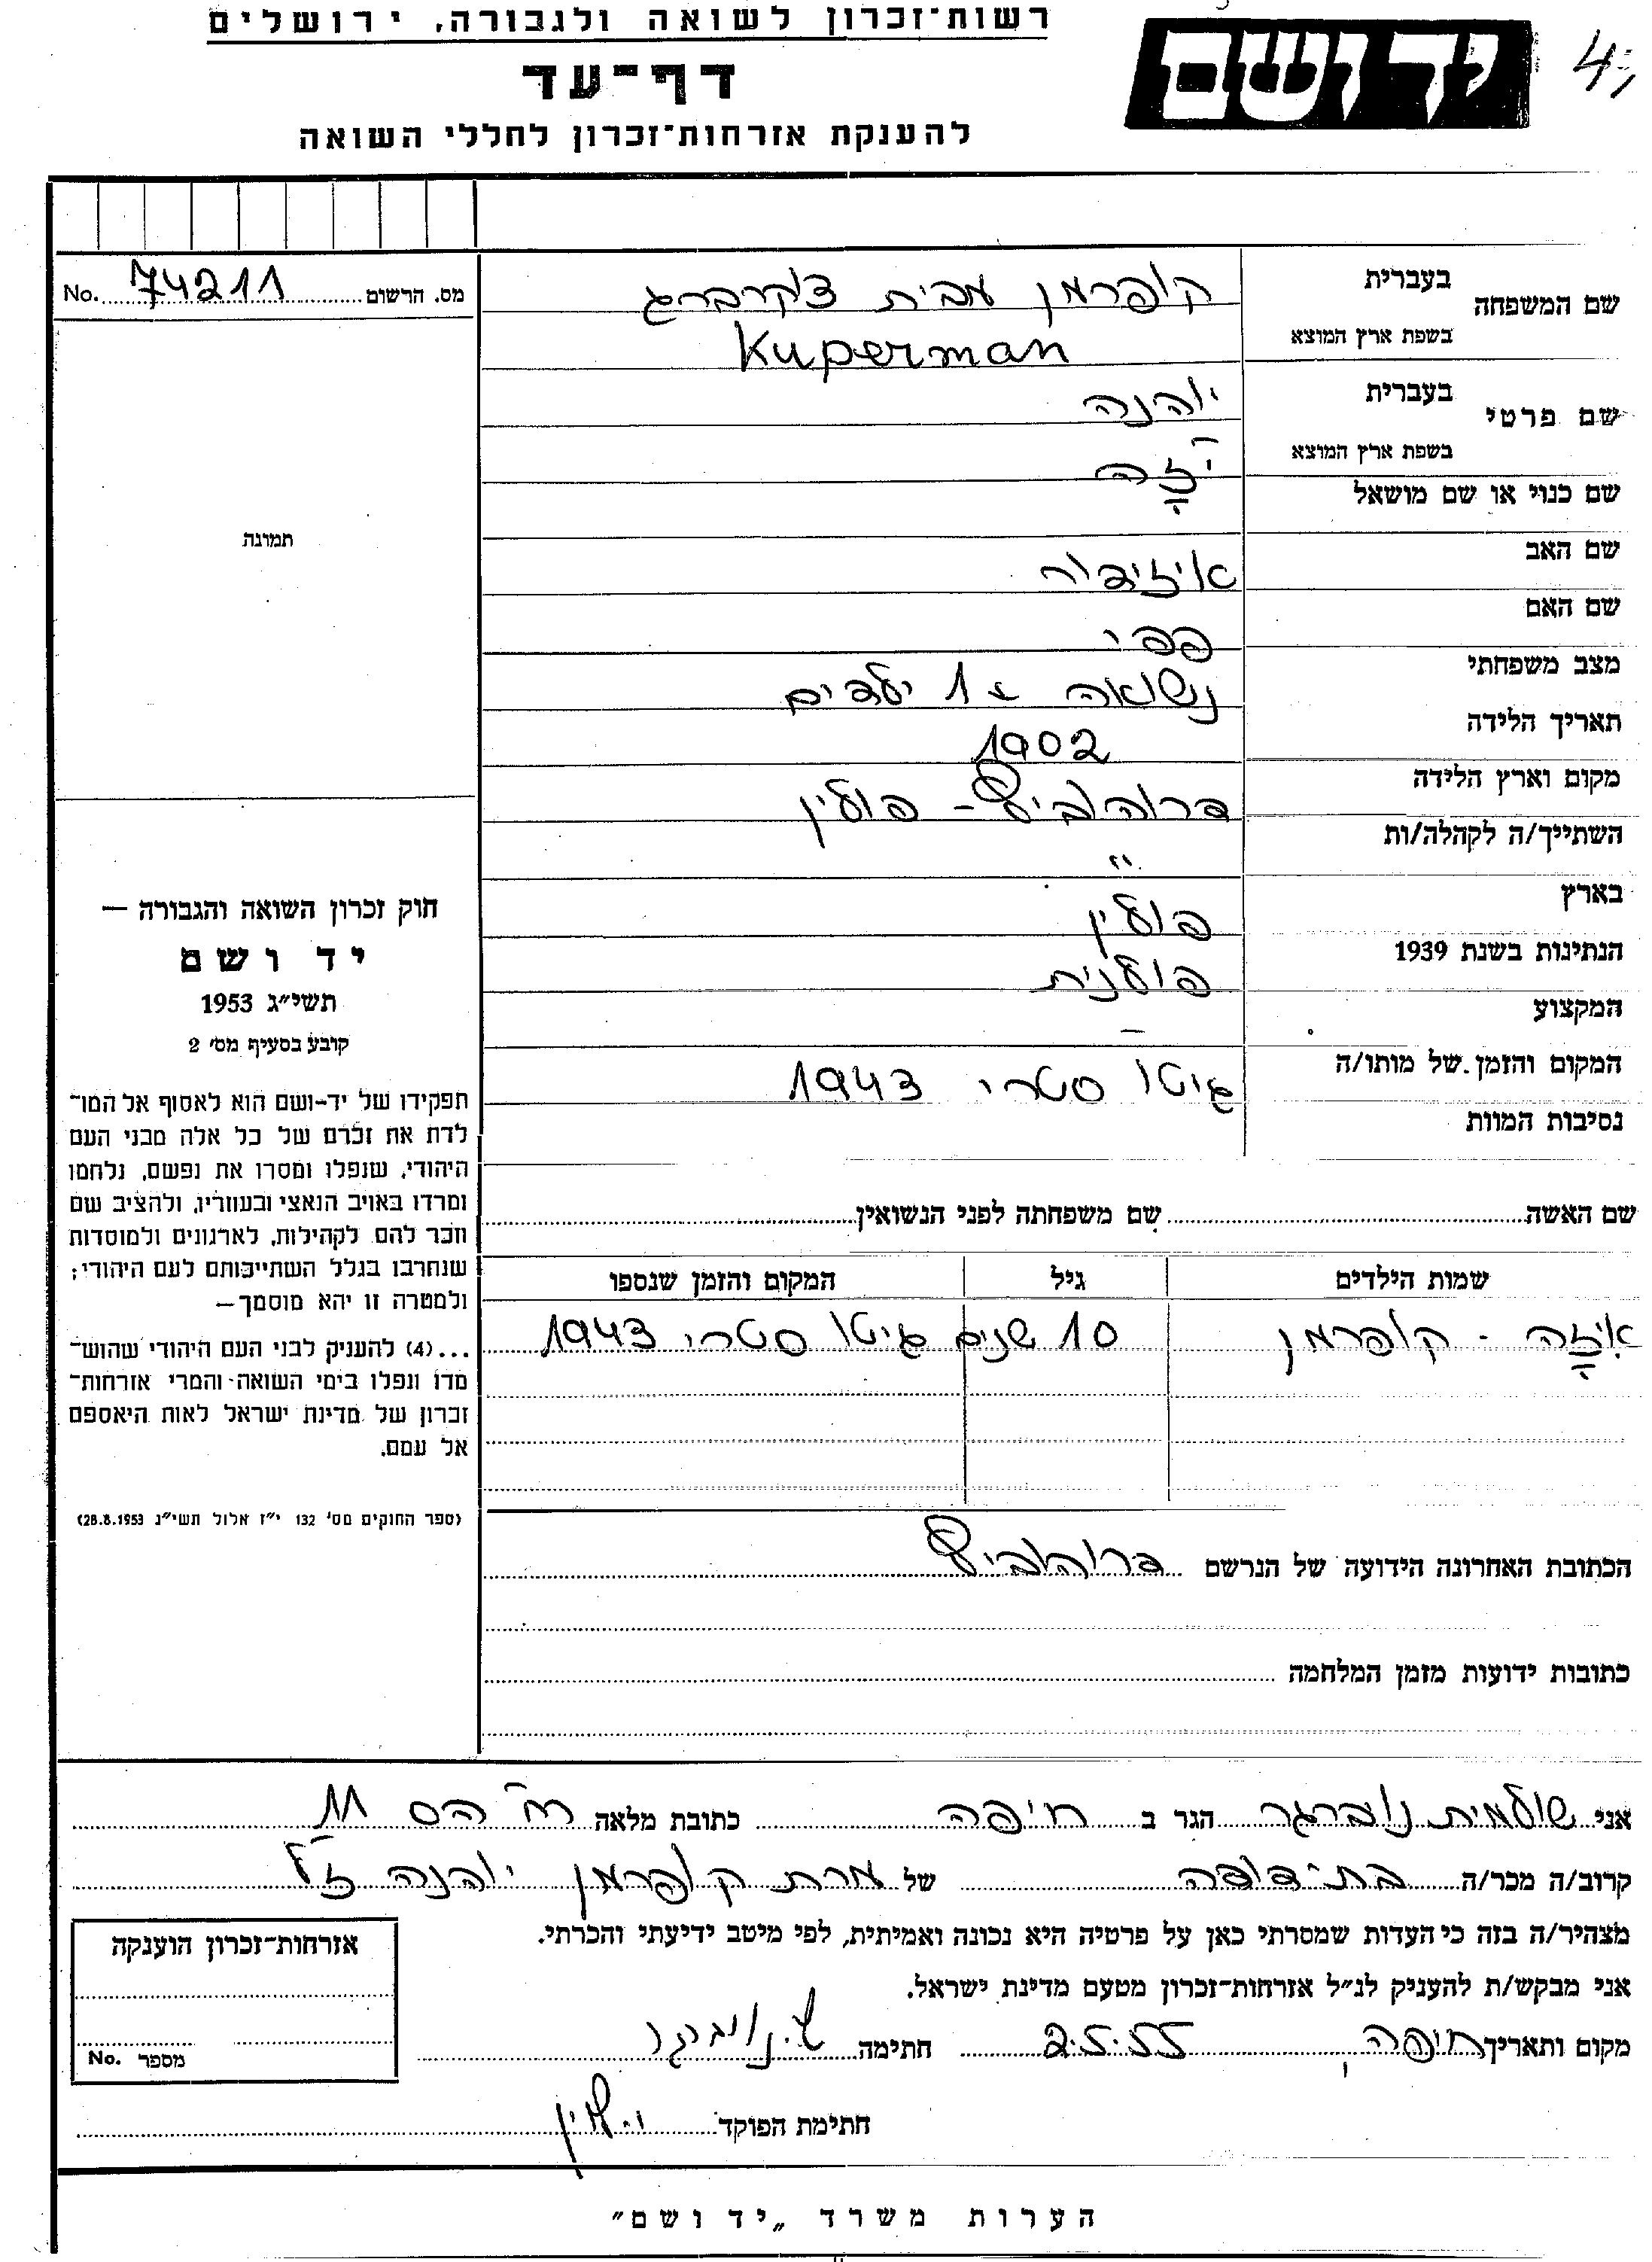 רשות־זכרון לשואה ולגבורה, ירושלים
יד ושם
דף־עד
להענקת אזרחות־זכרון לחללי השואה
מס. הרשום 74211 No.
תמונה
שם המשפחה
בעברית קופרמן מבית צוקרברג
בשפת ארץ המוצא Kuperman
שם פרטי
בעברית יוהנה
בשפת ארץ המוצא
שם כנוי או שם מושאל
שם האב איזידור
שם האם פפי
מצב משפחתי נשואה + 1 ילדים
תאריך הלידה 1902
מקום וארץ הלידה דרוהוביץ - פולין
השתייך/ה לקהלה/ות "
בארץ פולין
הנתינות בשנת 1939 פולנית
המקצוע –
המקום והזמן של מותו/ה גיטו סטרי 1943
נסיבות המוות
שם האשה שם משפחתה לפני הנשואין
שמות הילדים גיל המקום והזמן שנספו
איזה - קופרמן 10 שנים גיטו סטרי 1943
הכתובת האחרונה הידועה של הנרשם דרוהוביץ
כתובות ידועות מזמן המלחמה
חוק זכרון השואה והגבורה —
יד ושם
תשי״ג 1953
קובע בסעיף מס׳ 2
תפקידו של יד-ושם הוא לאסוף אל המו־
לדת את זכרם של כל אלה מבני העם
היהודי, שנפלו ומסרו את נפשם, נלחמו
ומרדו באויב הנאצי ובעוזריו, ולהציב שם
וזכר להם לקהילות, לארגונים ולמוסדות
שנחרבו בגלל השתייכותם לעם היהודי;
ולמטרה זו יהא מוסמך—
...(4) להעניק לבני העם היהודי שהוש־
מדו ונפלו בימי השואה והמרי אזרחות־
זכרון של מדינת ישראל לאות היאספם
אל עמם.
(ספר החוקים מס׳ 132 י״ז אלול תשי״ג 28.8.1953)
אני שולמית נויברגר הגר ב חיפה כתובת מלאה רח' הס 11
קרוב/ה מכר/ה בת־דודה של מרת קופרמן יוהנה ז"ל
מצהיר/ה בזה כי העדות שמסרתי כאן על פרטיה היא נכונה ואמיתית, לפי מיטב ידיעתי והכרתי.
אני מבקש/ת להעניק לנ״ל אזרחות־זכרון מטעם מדינת ישראל.
מקום ותאריך חיפה, 2.5.55 חתימה ש. נויברגר
חתימת הפוקד
אזרחות־זכרון הוענקה
מספר No.
הערות משרד „יד ושם"